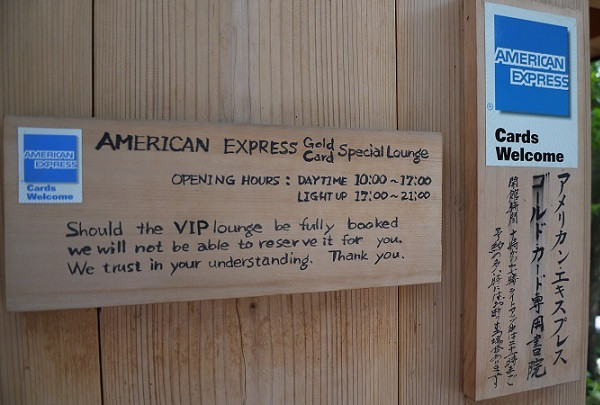 AMERICAN EXPRESS
Cards
Welcome
AMERICAN EXPRESS Gold Card Special Lounge
OPENING HOURS : DAYTIME 10:00~17:00
LIGHT UP 17:00~21:00
Should the VIP lounge be fully booked
we will not be able to reserve it for you.
We trust in your understanding. Thank you.
AMERICAN
EXPRESS
®
Cards
Welcome
アメリカン・エキスプレス
ゴールドカード専用書院
開館時間